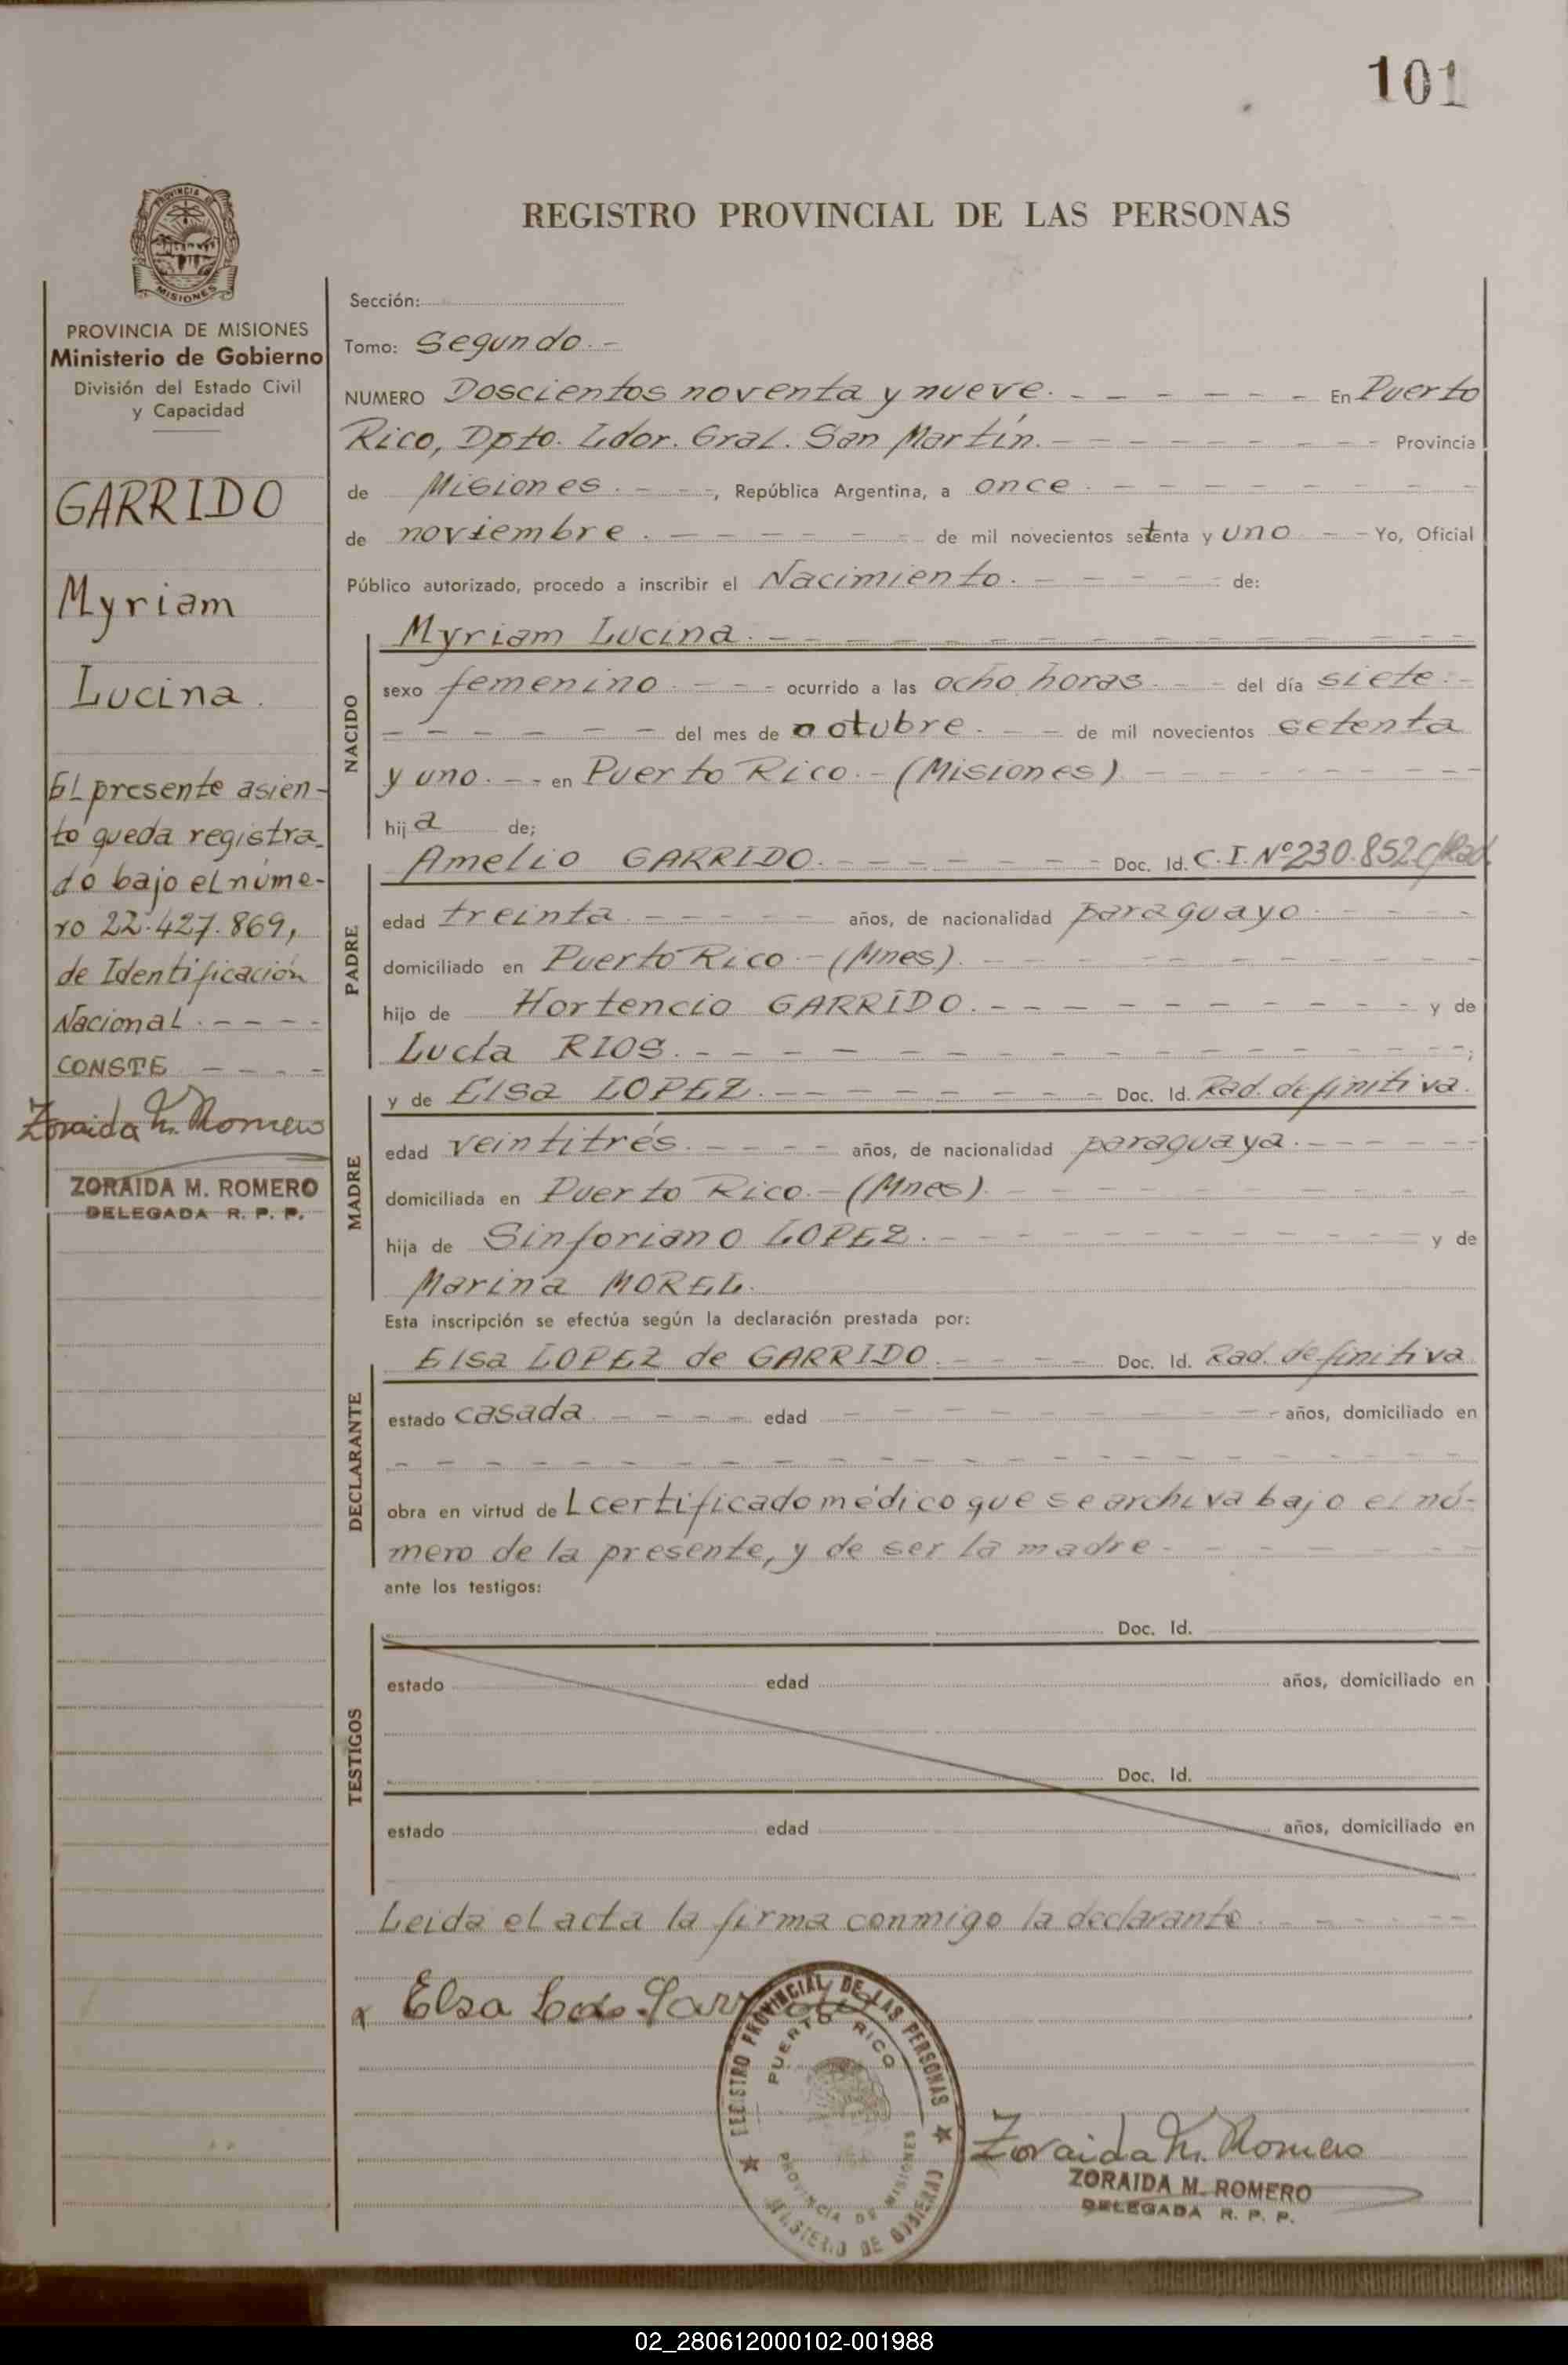 101
PROVINCIA DE
MISIONES
REGISTRO PROVINCIAL DE LAS PERSONAS
PROVINCIA DE MISIONES
Ministerio de Gobierno
División del Estado Civil
y Capacidad
GARRIDO
Myriam
Lucina.
El presente asien-
to queda registra-
do bajo el núme-
ro 22.427.869,
de Identificación
Nacional. - - - -
CONSTE - - - -
Zoraida M. Romero
ZORAIDA M. ROMERO
DELEGADA R. P. P.
Sección:
Tomo: Segundo. -
NUMERO Doscientos noventa y nueve. - - - - - - En Puerto
Rico, Dpto. Ldor. Gral. San Martín. - - - - - - - - Provincia
de Misiones. - - -, República Argentina, a once. - - - - - - - - -
de noviembre. - - - - - - - de mil novecientos setenta y uno - - Yo, Oficial
Público autorizado, procedo a inscribir el Nacimiento. - - - - - de:
NACIDO
Myriam Lucina. - - - - - - - - - - - - -
sexo femenino. - - - ocurrido a las ocho horas. - - del día siete. -
- - - - - - del mes de octubre. - - de mil novecientos setenta
y uno. - - en Puerto Rico. - (Misiones) - - - - - - - -
hija de;
PADRE
Amelio GARRIDO. - - - - - - Doc. Id. C.I. Nº 230.852 c/Rad.
edad treinta. - - - - - años, de nacionalidad paraguayo. - - - -
domiciliado en Puerto Rico - (Mnes). - - - - - - - - - -
hijo de Hortencio GARRIDO. - - - - - - - - - y de
Lucía RIOS. - - - - - - - - - - - - - - - -;
MADRE
y de Elsa LOPEZ. - - - - - - - Doc. Id. Rad. definitiva.
edad veintitrés. - - - - años, de nacionalidad paraguaya. - - - -
domiciliada en Puerto Rico. - (Mnes). - - - - - - - - -
hija de Sinforiano LOPEZ. - - - - - - - - - - y de
Marina MOREL.
Esta inscripción se efectúa según la declaración prestada por:
DECLARANTE
Elsa LOPEZ de GARRIDO. - - - - Doc. Id. Rad. definitiva
estado casada - - - - edad - - - - - - - - - años, domiciliado en
- - - - - - - - - - - - - - - - - - - - - - -
obra en virtud de l certificado médico que se archiva bajo el nú-
mero de la presente, y de ser la madre. - - - - - -
ante los testigos:
TESTIGOS
Doc. Id.
estado edad años, domiciliado en
Doc. Id.
estado edad años, domiciliado en
Leida el acta la firma conmigo la declarante. - - - - -
x Elsa
REGISTRO PROVINCIAL DE LAS PERSONAS
PUERTO RICO
PROVINCIA DE MISIONES
MINISTERIO DE GOBIERNO
Zoraida M. Romero
ZORAIDA M. ROMERO
DELEGADA R. P. P.
02_280612000102-001988